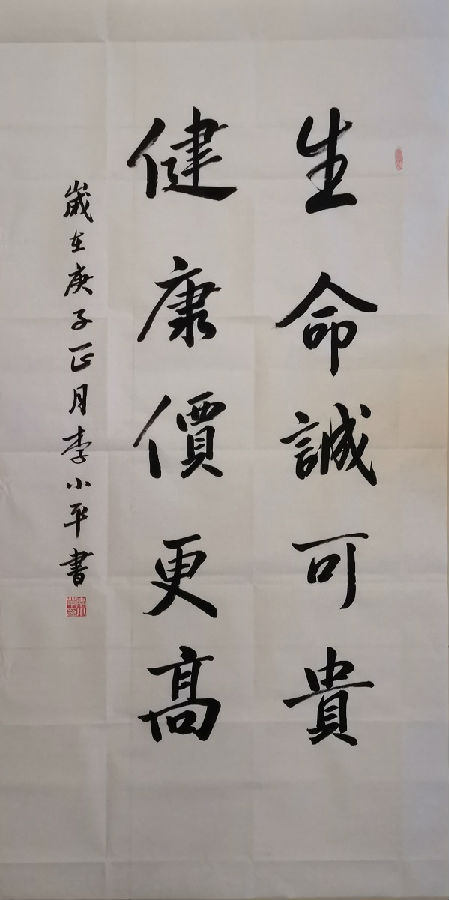 生命誠可貴
健康價更高
歲在庚子正月李小平書